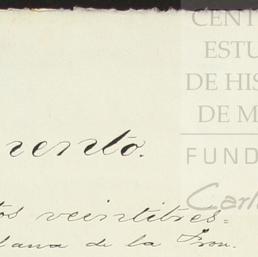 CENT
ESTU
DE HIS
DE M
FUND
Carl
mento.
tos veintitres=
lana de la Fron.